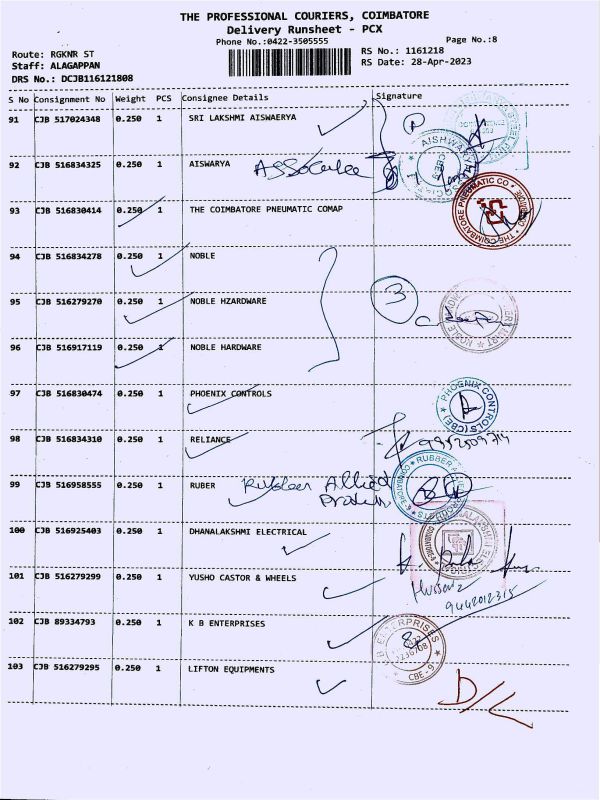 THE PROFESSIONAL COURIERS, COIMBATORE
Delivery Runsheet - PCX
Phone No.:0422-3505555
Page No.:8
Route: RGKNR ST
RS No.: 1161218
Staff: ALAGAPPAN
RS Date: 28-Apr-2023
DRS No.: DCJB116121808
S No Consignment No Weight PCS Consignee Details Signature
91 CJB 517024348 0.250 1 SRI LAKSHMI AISWAERYA
92 CJB 516834325 0.250 1 AISWARYA
93 CJB 516830414 0.250 1 THE COIMBATORE PNEUMATIC COMAP
THE COIMBATORE PNEUMATIC CO
94 CJB 516834278 0.250 1 NOBLE
95 CJB 516279270 0.250 1 NOBLE HZARDWARE
3
96 CJB 516917119 0.250 1 NOBLE HARDWARE
97 CJB 516830474 0.250 1 PHOENIX CONTROLS
PHOENIX CONTROLS (CBE)
98 CJB 516834310 0.250 1 RELIANCE
99 CJB 516958555 0.250 1 RUBER
100 CJB 516925403 0.250 1 DHANALAKSHMI ELECTRICAL
101 CJB 516279299 0.250 1 YUSHO CASTOR & WHEELS
9442012315
102 CJB 89334793 0.250 1 K B ENTERPRISES
ENTERPRISES
CBE - 9
103 CJB 516279295 0.250 1 LIFTON EQUIPMENTS
D/L